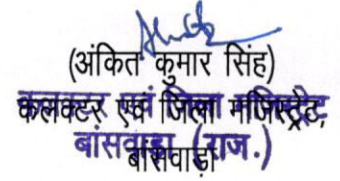 (अंकित कुमार सिंह)
कलक्टर एवं जिला मजिस्ट्रेट,
कलक्टर एवं जिला मजिस्ट्रेट
बांसवाड़ा (राज.)
बांसवाड़ा